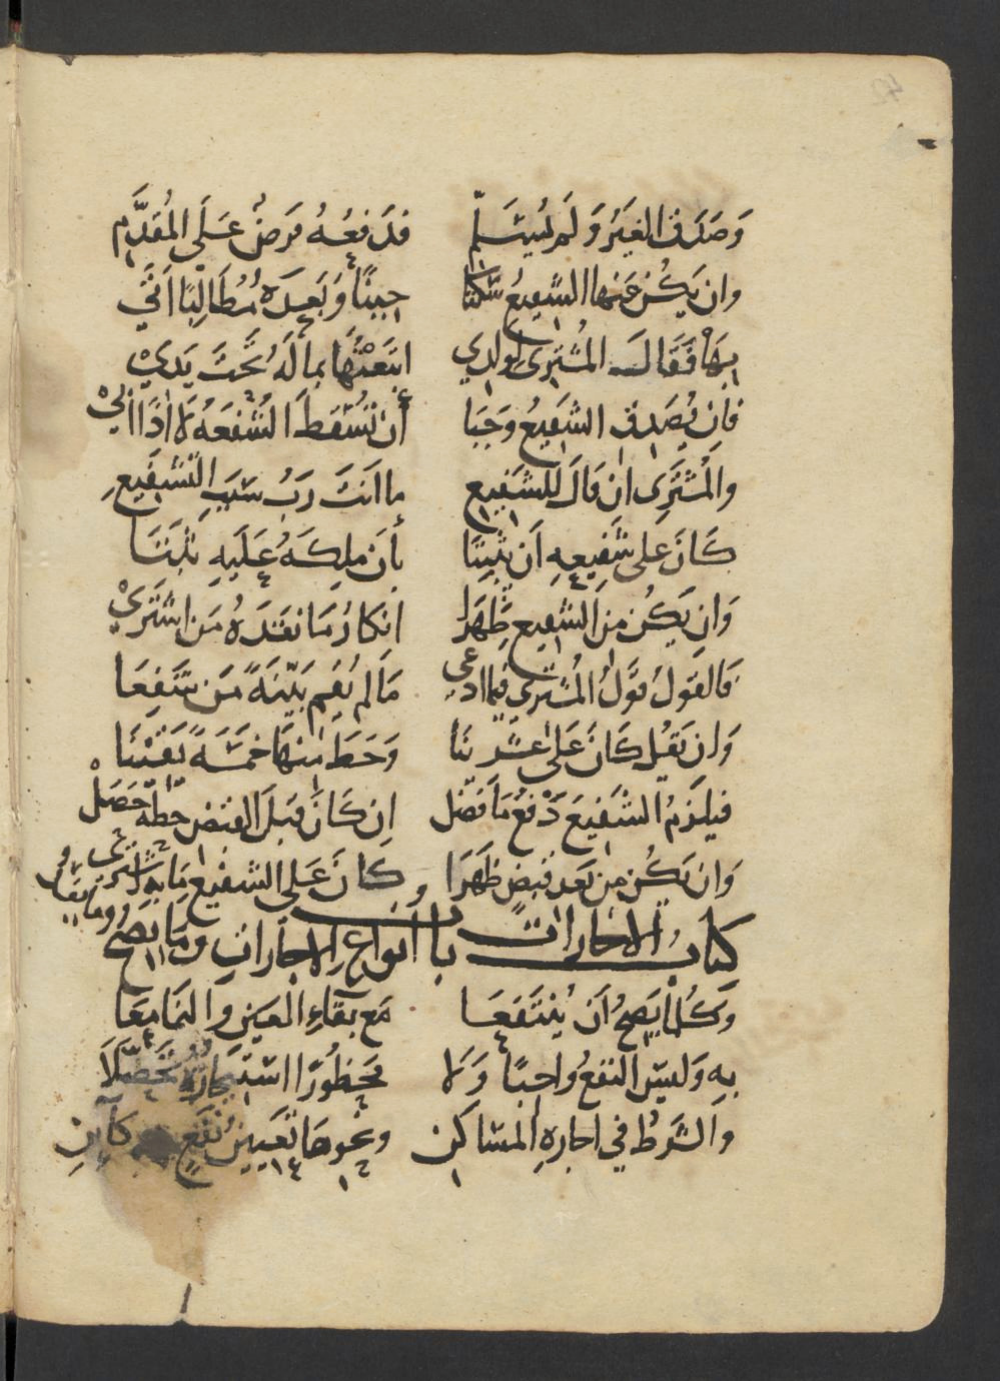 وَصَدَّقَ الغَيْرُ وَلَم يُسَلِّمِ فَدَفعُهُ فَرضٌ عَلَى المُقَدَّمِ
وان يَكُن عَنها الشفيعُ سَكتَا حِينًا وَبَعدَهُ مُطَالِبًا اَتَى
بِهَا فَقَالَ المُشتَرِى لِوَلدِي ابتَعتُهَا بِمَا لَهُ تَحتَ يَدِي
فَاِن يُصَدِّق الشفِيعُ وَجَبَا أَن تُسقطَ الشُفعَهُ لَا اذَا اَبَى
وَالمُشتَرِى ان قَالَ للشفِيعِ ما اَنتَ رَبُ سَبَبِ التشفِيعِ
كَانَ عَلى شَفِيعِهِ اَن يُثبِتَا بأَنَ ملكَهُ عَلَيهِ ثَبَتَا
وَان يَكُن مِنَ الشفِيعِ ظَهَرَا انكَارُ مَا نَقَدَهُ مَن اشتَرَى
فَالقَولُ قَولُ المُشتَرِي فيما ادعى مَا لم يُقِم بَيِّنَةً مَن شَفَعَا
وَان يَقُل كَانَ عَلى عشرينَا وَحَطَ مِنهَا خَمسَةً يَقِينَا
فَيَلزَمُ الشفِيعَ دَفعُ مَا فَضَل اِن كَانَ قَبلَ القبضِ حَطُّهُ حَصَلْ
وَان يَكُن مِن بَعدِ قبضٍ ظَهَرَا كانَ عَلى الشفيعِ مَا بِهِ اشترى
كتاب الاجارات باب انواع الاجاراتِ وَمَا يصح وما يفسد
وَكُلمَا يَصِحُ اَن يُنتَفَعَا مَع بَقَاءِ العَينِ وَالنمَا مَعَا
بِهِ وَلَيسَ النفعُ وَاجِبًا وَلَا مَحظُورًا استئجَارُهُ
وَالشَرطُ في اجارةِ المسَاكِنِ وَنحوهَا تَعيينُ نَفعٍ كَائنِ